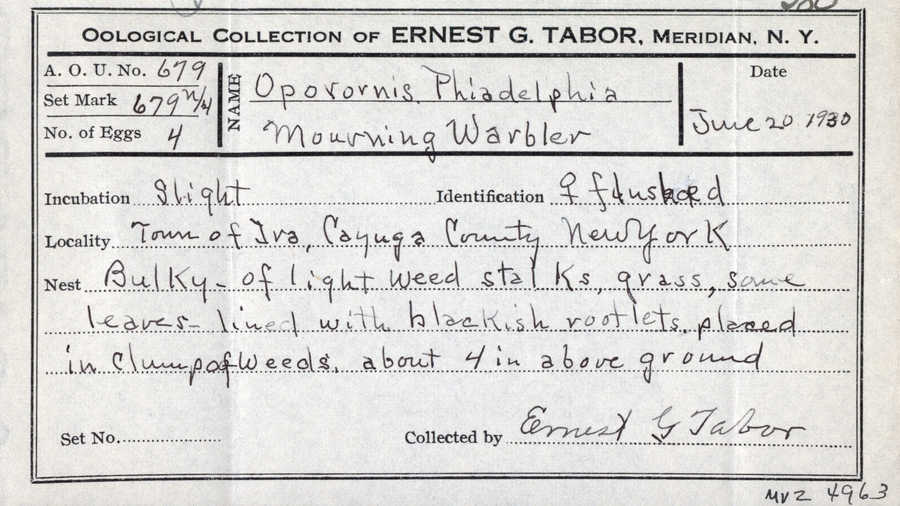 OOLOGICAL COLLECTION OF ERNEST G. TABOR, MERIDIAN, N. Y.
A. O. U. No. 679
Set Mark 679 n/4
No. of Eggs 4
NAME
Oporornis Phiadelphia
Mourning Warbler
Date
June 20 1930
Incubation Slight
Identification ♀ flushed
Locality Town of Ira, Cayuga County New York
Nest Bulky - of light weed stalks, grass, some
leaves - lined with blackish rootlets, placed
in clump of weeds, about 4 in above ground
Set No.
Collected by Ernest G Tabor
MVZ 4963